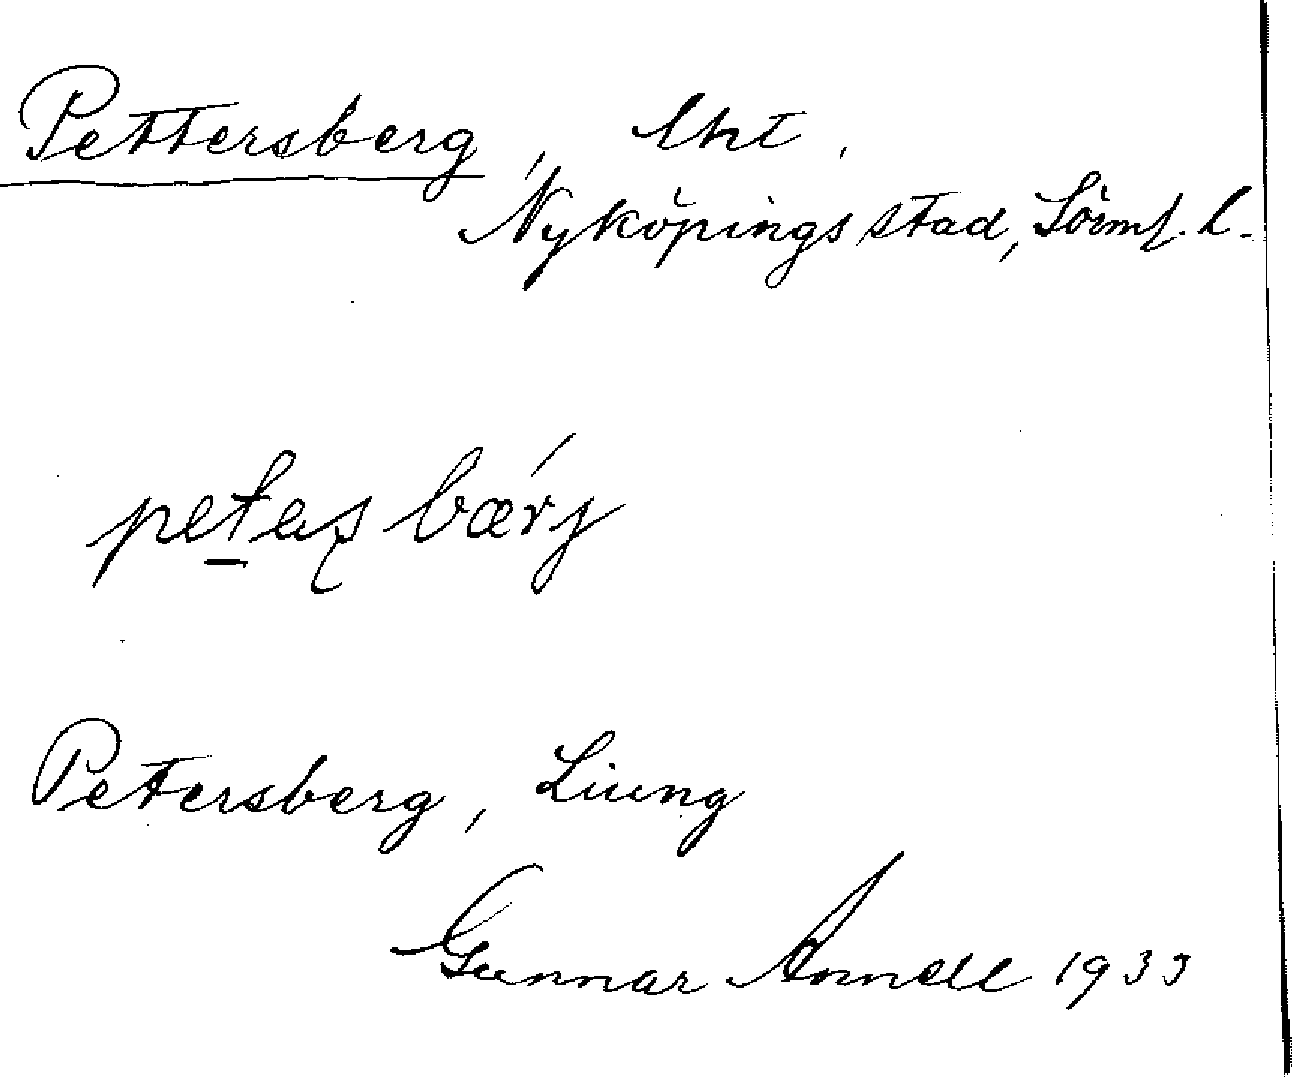 Pettersberg, lht.
Nyköpings stad, Sörml. l.
petaʂ bærj
Petersberg, Liung
Gunnar Annell 1933